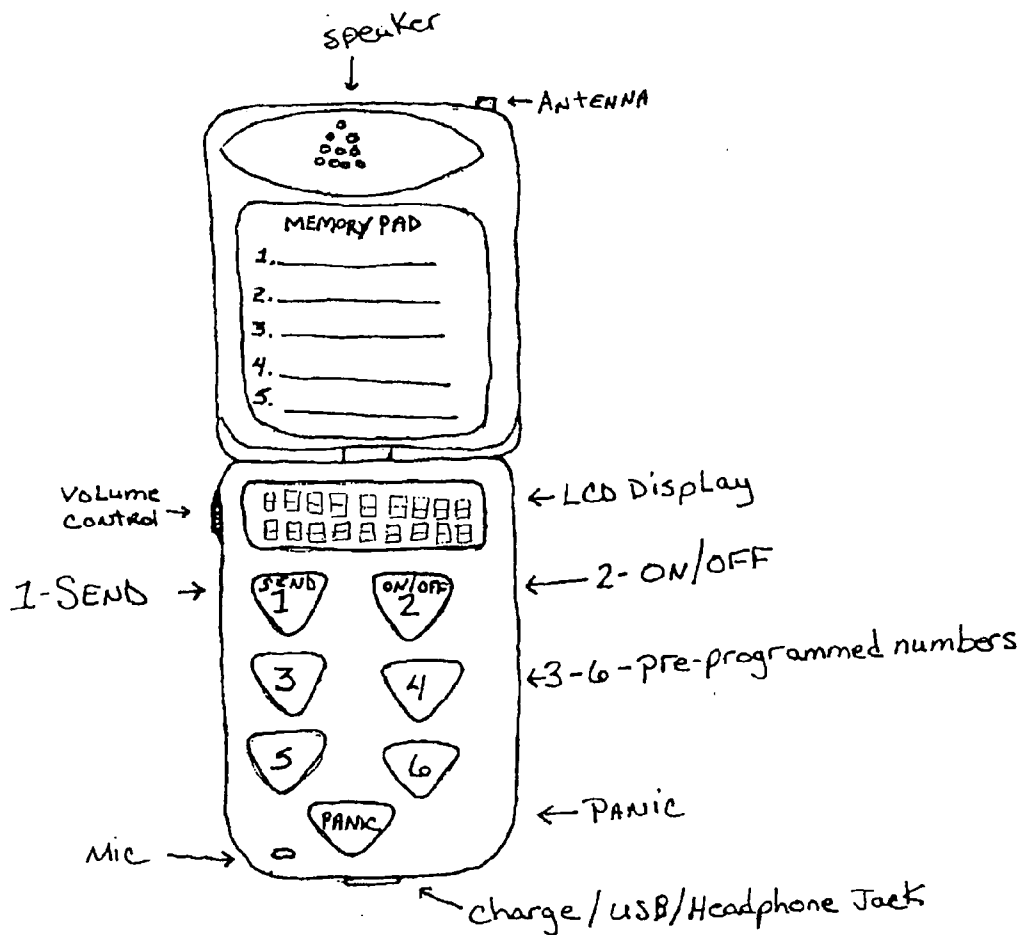 speaker
ANTENNA
MEMORY PAD
1.
2.
3.
4.
5.
Volume
control
LCD Display
1-SEND
SEND
1
ON/OFF
2
2- ON/OFF
3
4
3-6-pre-programmed numbers
5
6
PANIC
PANIC
Mic
charge/USB/Headphone Jack